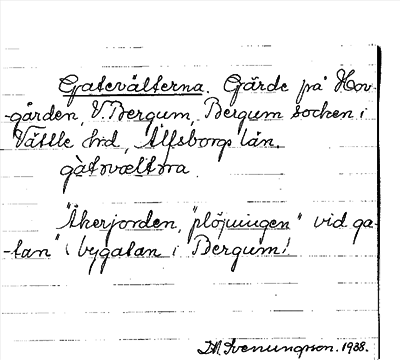 Gatevälterna. Gärde på Hov-
-gården, V. Bergum, Bergum socken i
Vättle hrd, Älfsborgs län.
gàtəvæltɒra.
"Åkerjorden, "plöjningen" vid ga-
-tan" (bygatan i Bergum)
D.A. Svenungsson. 1938.